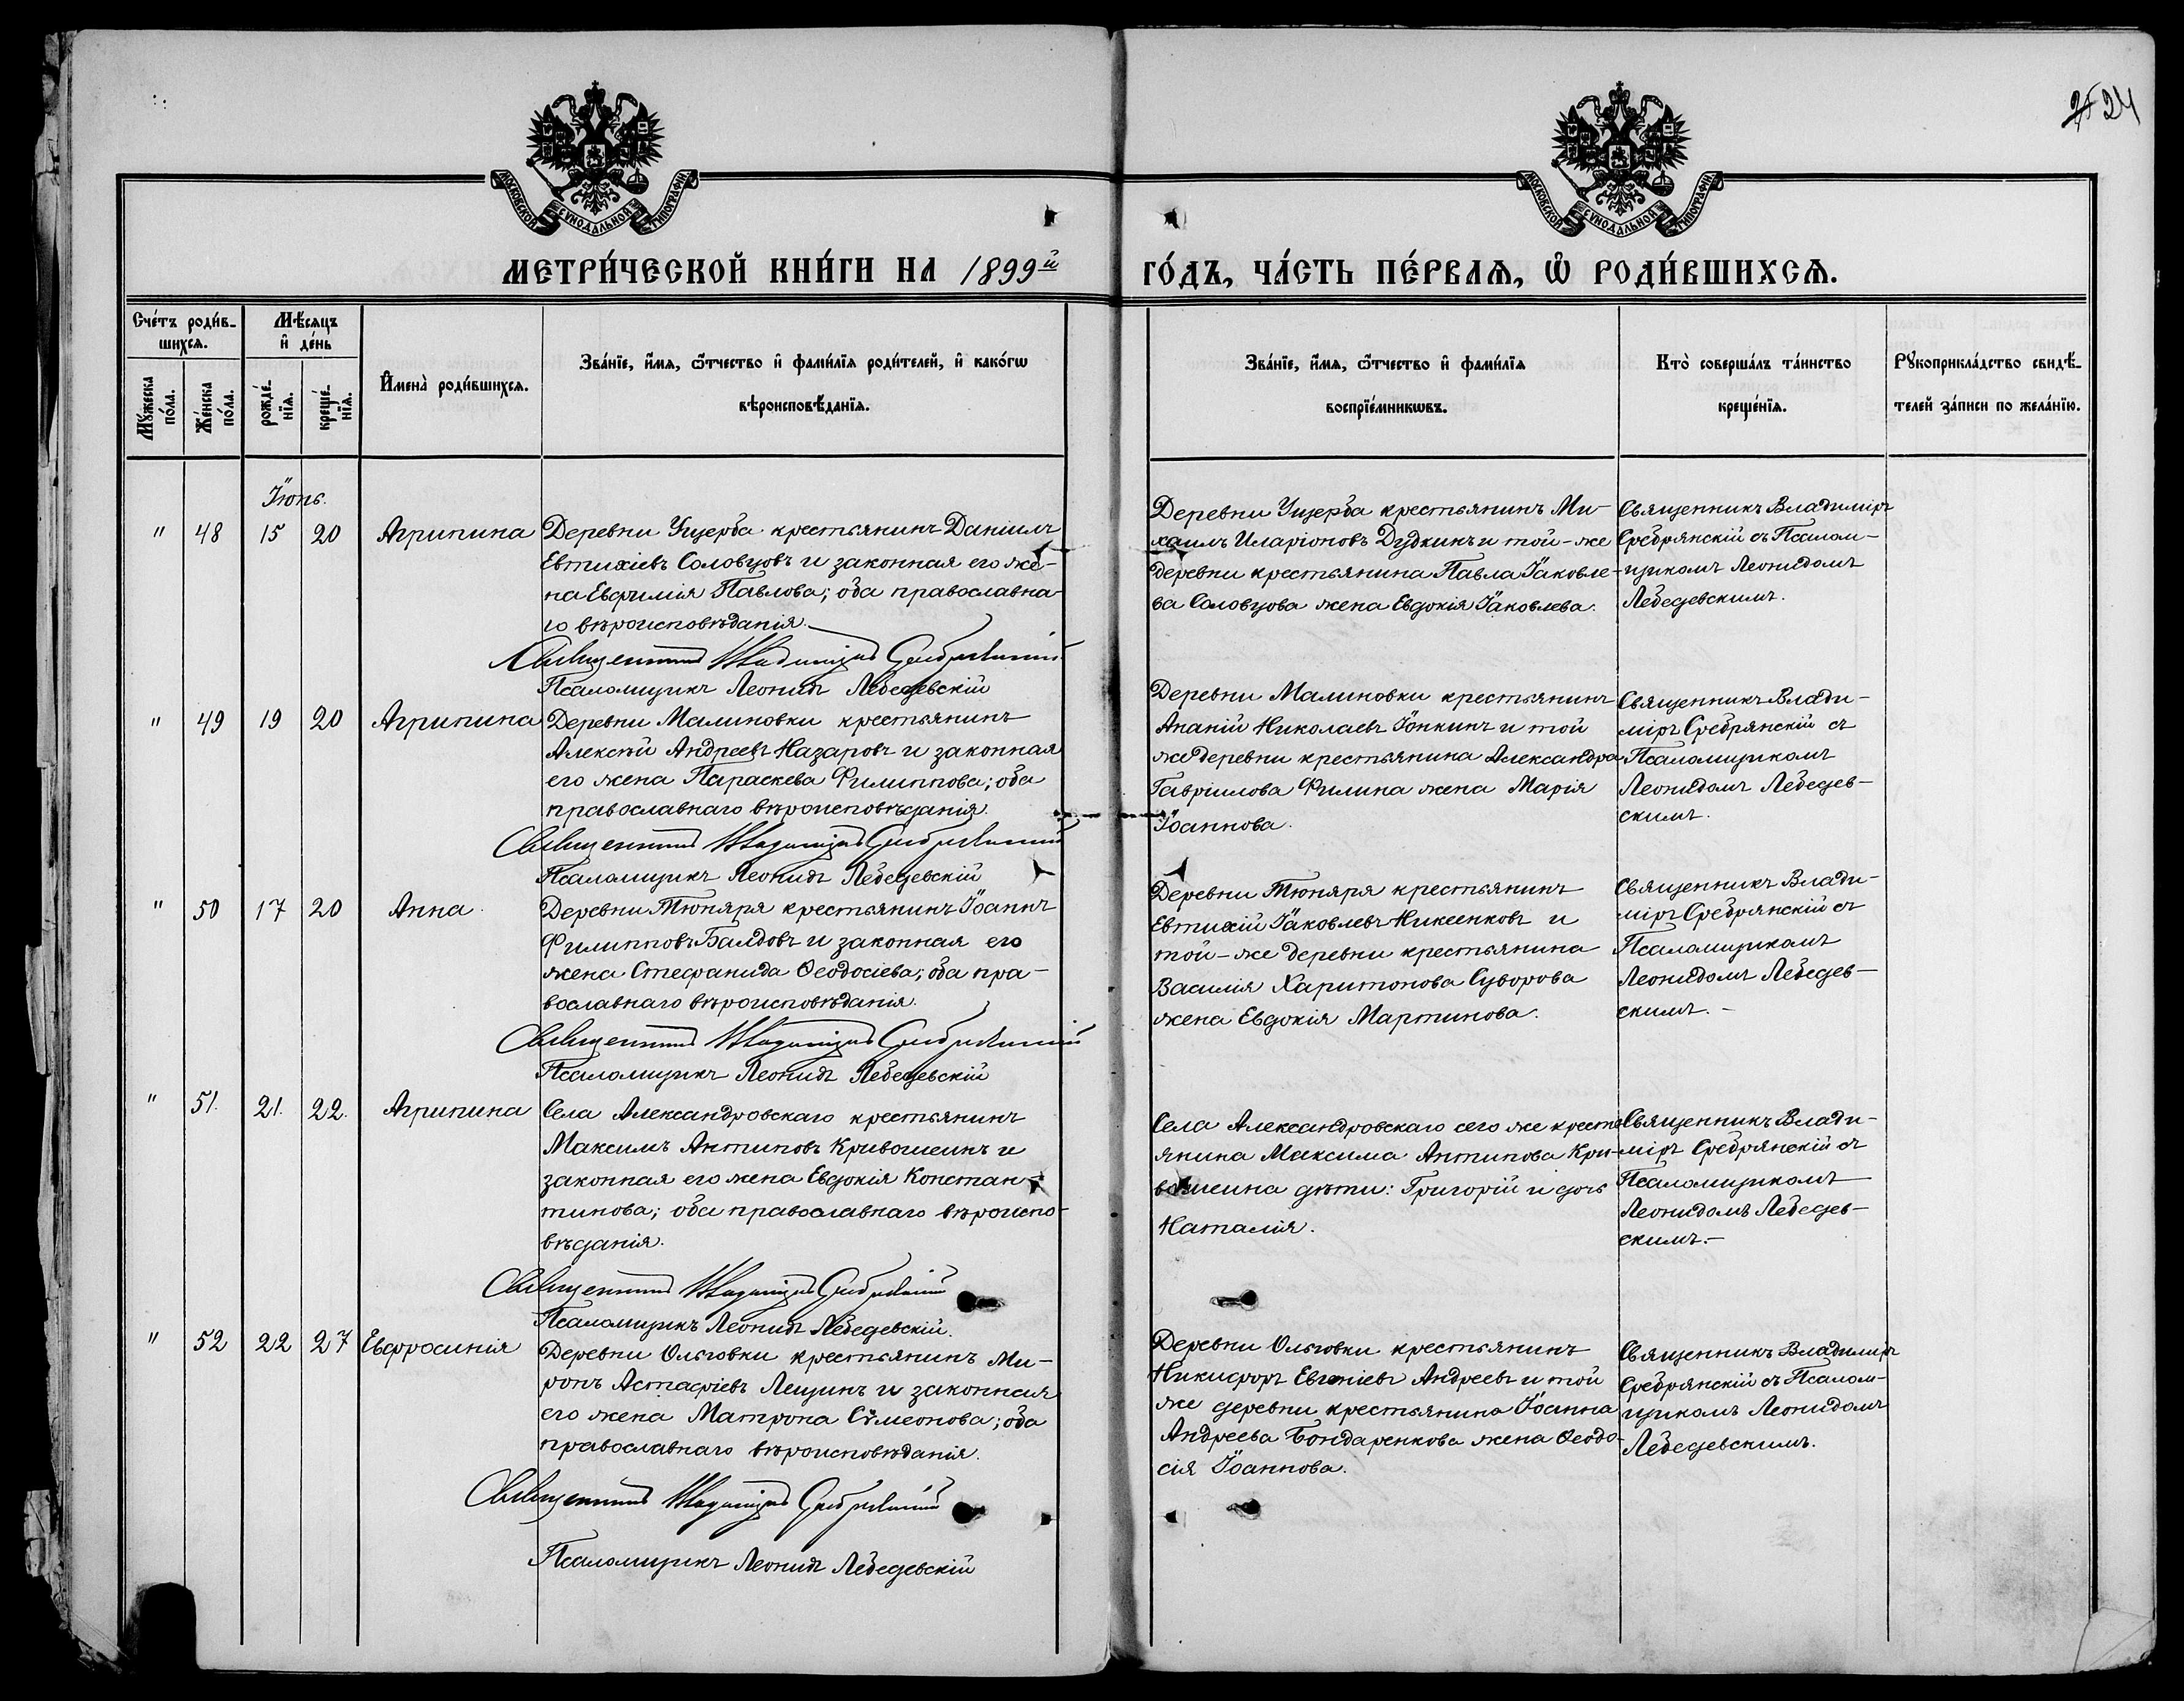 25 24
МОСКОВСКОЙ СѴНОДАЛЬНОЙ ТИПОГРАФІИ
МОСКОВСКОЙ СѴНОДАЛЬНОЙ ТИПОГРАФІИ
МЕТРИ́ЧЕСКОЙ КНИ́ГИ НА 1899й ГО́ДЪ, ЧА́СТЬ ПЕ́РВАѦ, Ѡ҆ РОДИ́ВШИХСѦ.
Сче́тъ роди́в-
шихсѧ.
Мꙋ́жеска по́ла.
Же́нска по́ла.
Мѣ́сѧцъ
и҆ де́нь
рожде́-
нїѧ.
креще́-
нїѧ.
И҆мена̀ роди́вшихсѧ.
Зва́нїе, и҆́мѧ, ѻ҆́тчество и҆ фами́лїѧ роди́телей, и҆ како́гѡ
вѣроисповѣ́данїѧ.
Зва́нїе, и҆́мѧ, ѻ҆́тчество и҆ фами́лїѧ
воспрїе́мникѡвъ.
Кто̀ соверша́лъ та́инство
креще́нїѧ.
Рꙋкоприкла́дство свидѣ́-
телей за́писи по жела́нїю.
Іюнь.
" 48 15 20 Агрипина
Деревни Ущерба крестьянинъ Даніилъ
Евтихіевъ Соловцовъ и законная его же-
на Евфимія Павлова; оба православна-
го вѣроисповѣданія.
Священникъ Владиміръ Сребрянскій
Псаломщикъ Леонидъ Лебедевскій
Деревни Ущерба крестьянинъ Ми-
хаилъ Иларіоновъ Дудкинъ и той-же
деревни крестьянина Павла Іаковле-
ва Соловцова жена Евдокія Іаковлева.
Священникъ Владиміръ
Сребрянскій съ Псалом-
щикомъ Леонидомъ
Лебедевскимъ.
" 49 19 20 Агрипина
Деревни Малиновки крестьянинъ
Алексѣй Андреевъ Назаровъ и законная
его жена Параскева Филиппова; оба
православнаго вѣроисповѣданія.
Священникъ Владиміръ Сребрянскій
Псаломщикъ Леонидъ Лебедевскій
Деревни Малиновки крестьянинъ
Ананій Николаевъ Іонкинъ и той
же деревни крестьянина Александра
Гавріилова Филина жена Марія
Іоаннова.
Священникъ Влади-
міръ Сребрянскій съ
Псаломщикомъ
Леонидомъ Лебедев-
скимъ.
" 50 17 20 Анна
Деревни Тюняря крестьянинъ Іоаннъ
Филипповъ Балдовъ и законная его
жена Стефанида Ѳеодосіева; оба пра-
вославнаго вѣроисповѣданія.
Священникъ Владиміръ Сребрянскій
Псаломщикъ Леонидъ Лебедевскій
Деревни Тюняря крестьянинъ
Евтихій Іаковлевъ Никеенковъ и
той-же деревни крестьянина
Василія Харитонова Суворова
жена Евдокія Мартинова.
Священникъ Влади-
міръ Сребрянскій съ
Псаломщикомъ
Леонидомъ Лебедев-
скимъ. -
" 51. 21. 22. Агрипина
Села Александровскаго крестьянинъ
Максимъ Антиповъ Кривошеинъ и
законная его жена Евдокія Констан-
тинова; оба православнаго вѣроиспо-
вѣданія.
Священникъ Владиміръ Сребрянскій
Псаломщикъ Леонидъ Лебедевскій.
Села Александровскаго сего же кресть-
янина Максима Антипова Кри-
вошеина дѣти: Григорій и дочь
Наталія.
Священникъ Влади-
міръ Сребрянскій съ
Псаломщикомъ
Леонидомъ Лебедев-
скимъ.-
" 52 22 27 Евфросинія
Деревни Ольговки крестьянинъ Ми-
ронъ Астафіевъ Лещинъ и законная
его жена Матрона Сѵмеонова; оба
православнаго вѣроисповѣданія.
Священникъ Владиміръ Сребрянскій
Псаломщикъ Леонидъ Лебедевскій
Деревни Ольговки крестьянинъ
Никифоръ Евгеніевъ Андреевъ и той
же деревни крестьянина Іоанна
Андреева Бондаренкова жена Ѳеодо-
сія Іоаннова.
Священникъ Владиміръ
Сребрянскій съ Псалом-
щикомъ Леонидомъ
Лебедевскимъ.